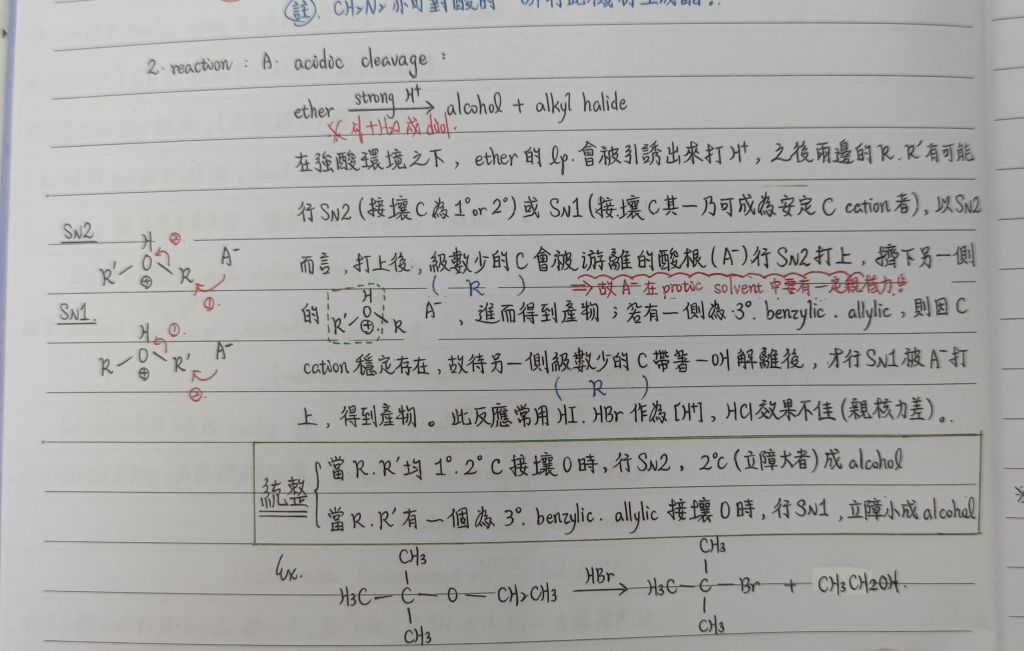 註. CH2N2 亦可對酸的 -OH 行此機制生成酯。
2. reaction : A. acidoc cleavage :
ether strong H+ → alcohol + alkyl halide
在強酸環境之下, ether 的 lp. 會被引誘出來打 H+, 之後兩邊的 R. R' 有可能
行 SN2 (接壤 C 為 1° or 2°) 或 SN1 (接壤 C 其一乃可成為安定 C cation 者), 以 SN2
SN2
H ②
R' O R A-
⊕ ①
而言, 打上後, 級數少的 C 會被游離的酸根 (A-) 行 SN2 打上, 擠下另一側
( R )
⇒ 故 A- 在 protic solvent 中要有一定親核力!!
SN1.
H ①
R O R' A-
⊕ ②
的 R' O R A- , 進而得到產物 ; 若有一側為 3°. benzylic. allylic, 則因 C
H
⊕
cation 穩定存在, 故待另一側級數少的 C 帶著 -OH 解離後, 才行 SN1 被 A- 打
( R )
上, 得到產物。此反應常用 HI. HBr 作為 [H+], HCl 效果不佳 (親核力差)。
統整
當 R. R' 均 1°. 2° C 接壤 O 時, 行 SN2, 2°C (立障大者) 成 alcohol
當 R. R' 有一個為 3°. benzylic. allylic 接壤 O 時, 行 SN1, 立障小成 alcohol
Ex.
CH3 CH3
H3C — C — O — CH2CH3 HBr → H3C — C — Br + CH3CH2OH.
CH3 CH3